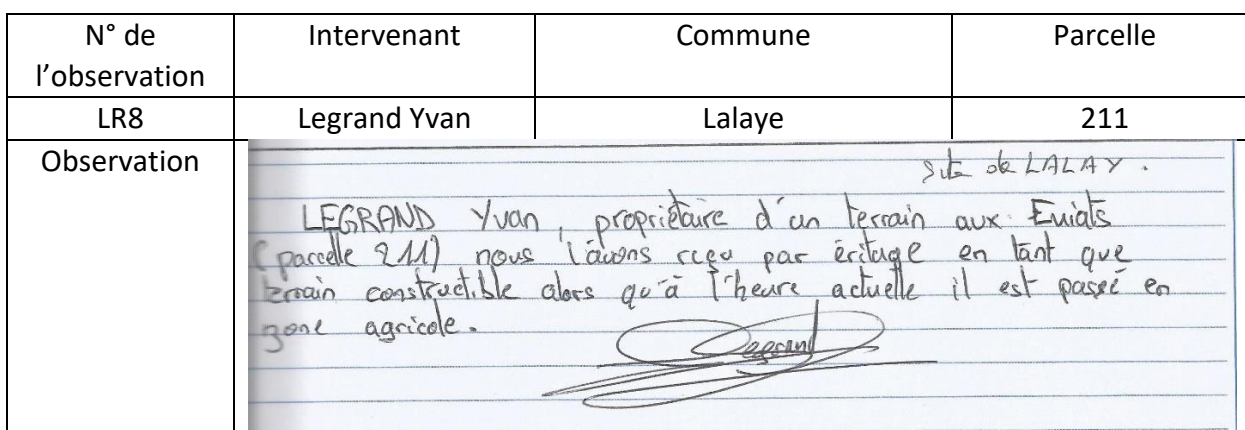 N° de l'observation Intervenant Commune Parcelle
LR8 Legrand Yvan Lalaye 211
Observation
Site de LALAY.
LEGRAND Yvan, propriétaire d'un terrain aux Emiats
(parcelle 211) nous l'avons rceu par éritage en tant que
terrain constructible alors qu'à l'heure actuelle il est passé en
zone agricole.
Legrand